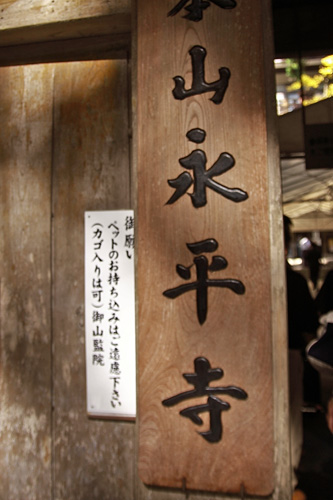 本山永平寺
御願い
ペットのお持ち込みはご遠慮下さい
(カゴ入りは可)御山監院